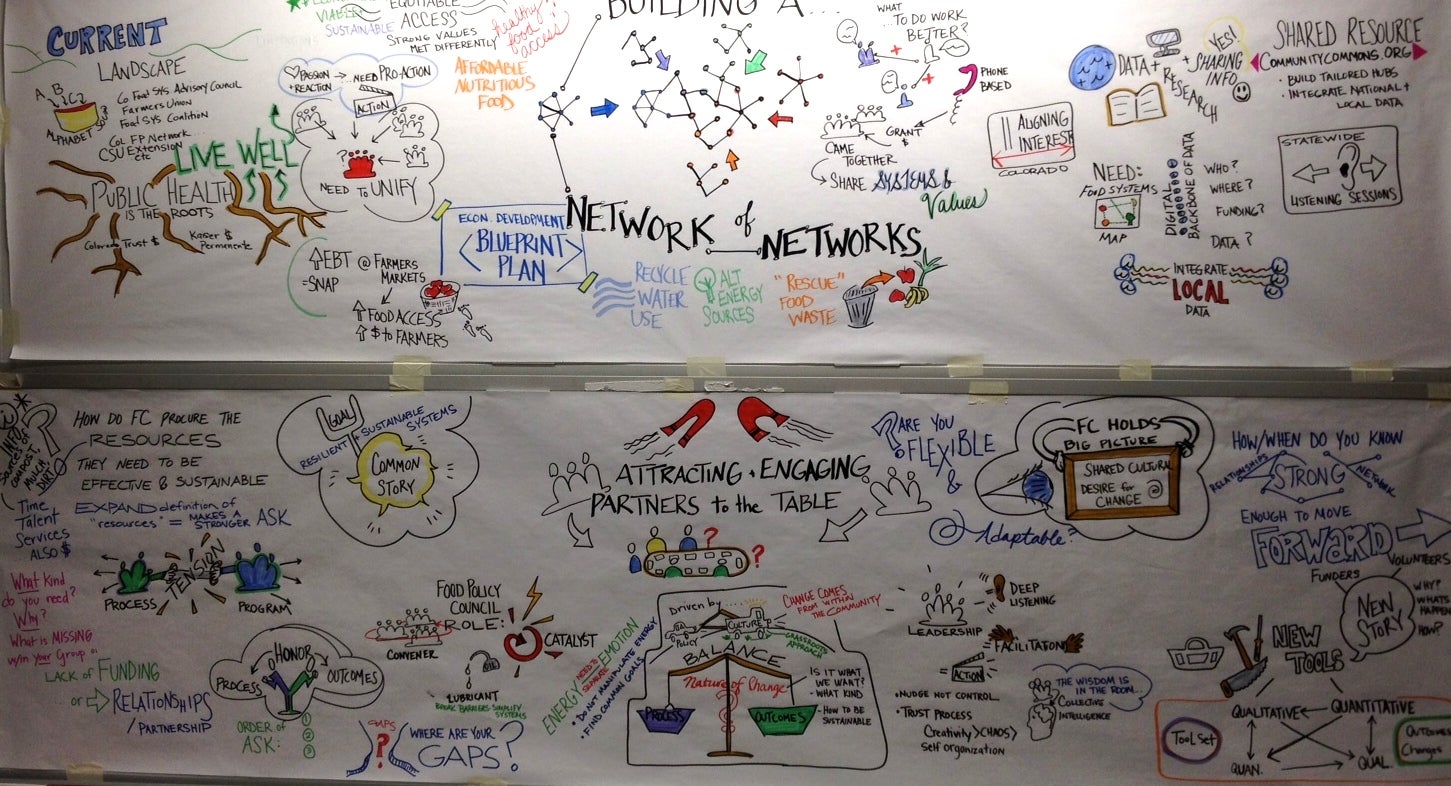 CURRENT
LANDSCAPE
A B C ?
ALPHABET
Co Food SYS Advisory Council
Farmers Union
Food SYS Coalition
Col FP Network...
CSU Extension
etc
LIVE WELL
PUBLIC HEALTH
IS THE ROOTS
Colorado Trust $
Kaiser $
Permanente
VIABLE
SUSTAINABLE
EQUITABLE
ACCESS
STRONG VALUES
MET DIFFERENTLY
healthy
food
access
PASSION
+REACTION
...NEED PRO-ACTION
ACTION
?
NEED to UNIFY
AFFORDABLE
NUTRITIOUS
FOOD
EBT @ FARMERS
MARKETS
=SNAP
FOOD ACCESS
$ to FARMERS
ECON. DEVELOPMENT
BLUEPRINT
PLAN
BUILDING A...
NETWORK of
NETWORKS
RECYCLE
WATER
USE
ALT
ENERGY
SOURCES
"RESCUE"
FOOD
WASTE
WHAT
...TO DO WORK
BETTER?
PHONE
BASED
GRANT
$
CAME
TOGETHER
SHARE SYSTEMS &
Values
ALIGNING
INTEREST
COLORADO
DATA +
RESEARCH
+ SHARING
INFO
YES!
SHARED RESOURCE
COMMUNITYCOMMONS.ORG
• BUILD TAILORED HUBS
• INTEGRATE NATIONAL +
LOCAL DATA
NEED:
FOOD SYSTEMS
MAP
DIGITAL
BACKBONE OF DATA
WHO?
WHERE?
FUNDING?
DATA?
STATEWIDE
LISTENING SESSIONS
INTEGRATE
LOCAL
DATA
INFO
Sources of
COMPOST,
MULCH
DIRT
HOW DO FC PROCURE THE
RESOURCES
THEY NEED TO BE
EFFECTIVE & SUSTAINABLE
Time
Talent
Services
ALSO $
EXPAND definition of
"resources" = MAKES A
STRONGER ASK
PROCESS
TENSION
PROGRAM
What kind
do you need?
Why?
What is MISSING
w/in your Group
LACK of FUNDING
or RELATIONSHIPS
/PARTNERSHIP
HONOR
PROCESS
OUTCOMES
ORDER of
ASK:
1
2
3
GOAL
RESILIENT + SUSTAINABLE SYSTEMS
COMMON
STORY
FOOD POLICY
COUNCIL
ROLE:
CONVENER
CATALYST
OIL
LUBRICANT
BREAK BARRIERS-SIMPLIFY
SYSTEMS
GAPS
?
WHERE ARE YOUR
GAPS?
ATTRACTING + ENGAGING
PARTNERS to the TABLE
?
?
ENERGY NEED TO SEPARATE EMOTION
• DO NOT MANIPULATE ENERGY
• FIND COMMON GOALS
Driven by......
CULTURE
POLICY
CHANGE COMES
FROM WITHIN
THE COMMUNITY
GRASSROOTS
APPROACH
BALANCE
Nature of Change
PROCESS
OUTCOMES
IS IT WHAT
WE WANT?
- WHAT KIND
- HOW TO BE
SUSTAINABLE
? ARE YOU
FLEXIBLE
&
Adaptable?
FC HOLDS
BIG PICTURE
SHARED CULTURAL
DESIRE for
CHANGE
LEADERSHIP
DEEP
LISTENING
FACILITATION
ACTION
• NUDGE NOT CONTROL
• TRUST PROCESS
Creativity > CHAOS >
Self organization
THE WISDOM IS
IN THE ROOM...
COLLECTIVE
INTELLIGENCE
HOW/WHEN DO YOU KNOW
RELATIONSHIPS
STRONG
NETWORK
ENOUGH TO MOVE
FORWARD
FUNDERS
VOLUNTEERS
NEW
STORY
WHY?
WHATS
HAPPEN
HOW?
NEW
TOOLS
QUALITATIVE
QUANTITATIVE
TOOL SET
QUAN.
QUAL.
OUTCOMES
Changes